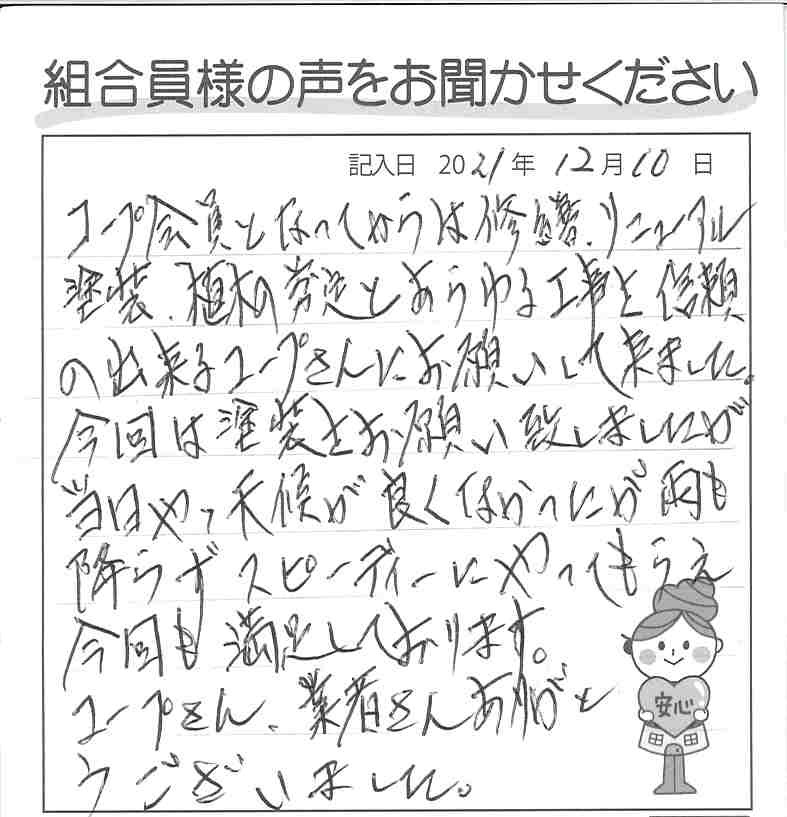 組合員様の声をお聞かせください
記入日 2021年 12月10日
コープ会員となってからは修繕、リニューアル
塗装、植木の剪定とあらゆる工事を信頼
の出来るコープさんにお願いして来ました。
今回は塗装をお願い致しましたが
当日やゝ天候が良くなかったが雨も
降らず スピーディーにやってもらえ
今回も満足しております。
コープさん、業者さんありがと
うございました。
安心